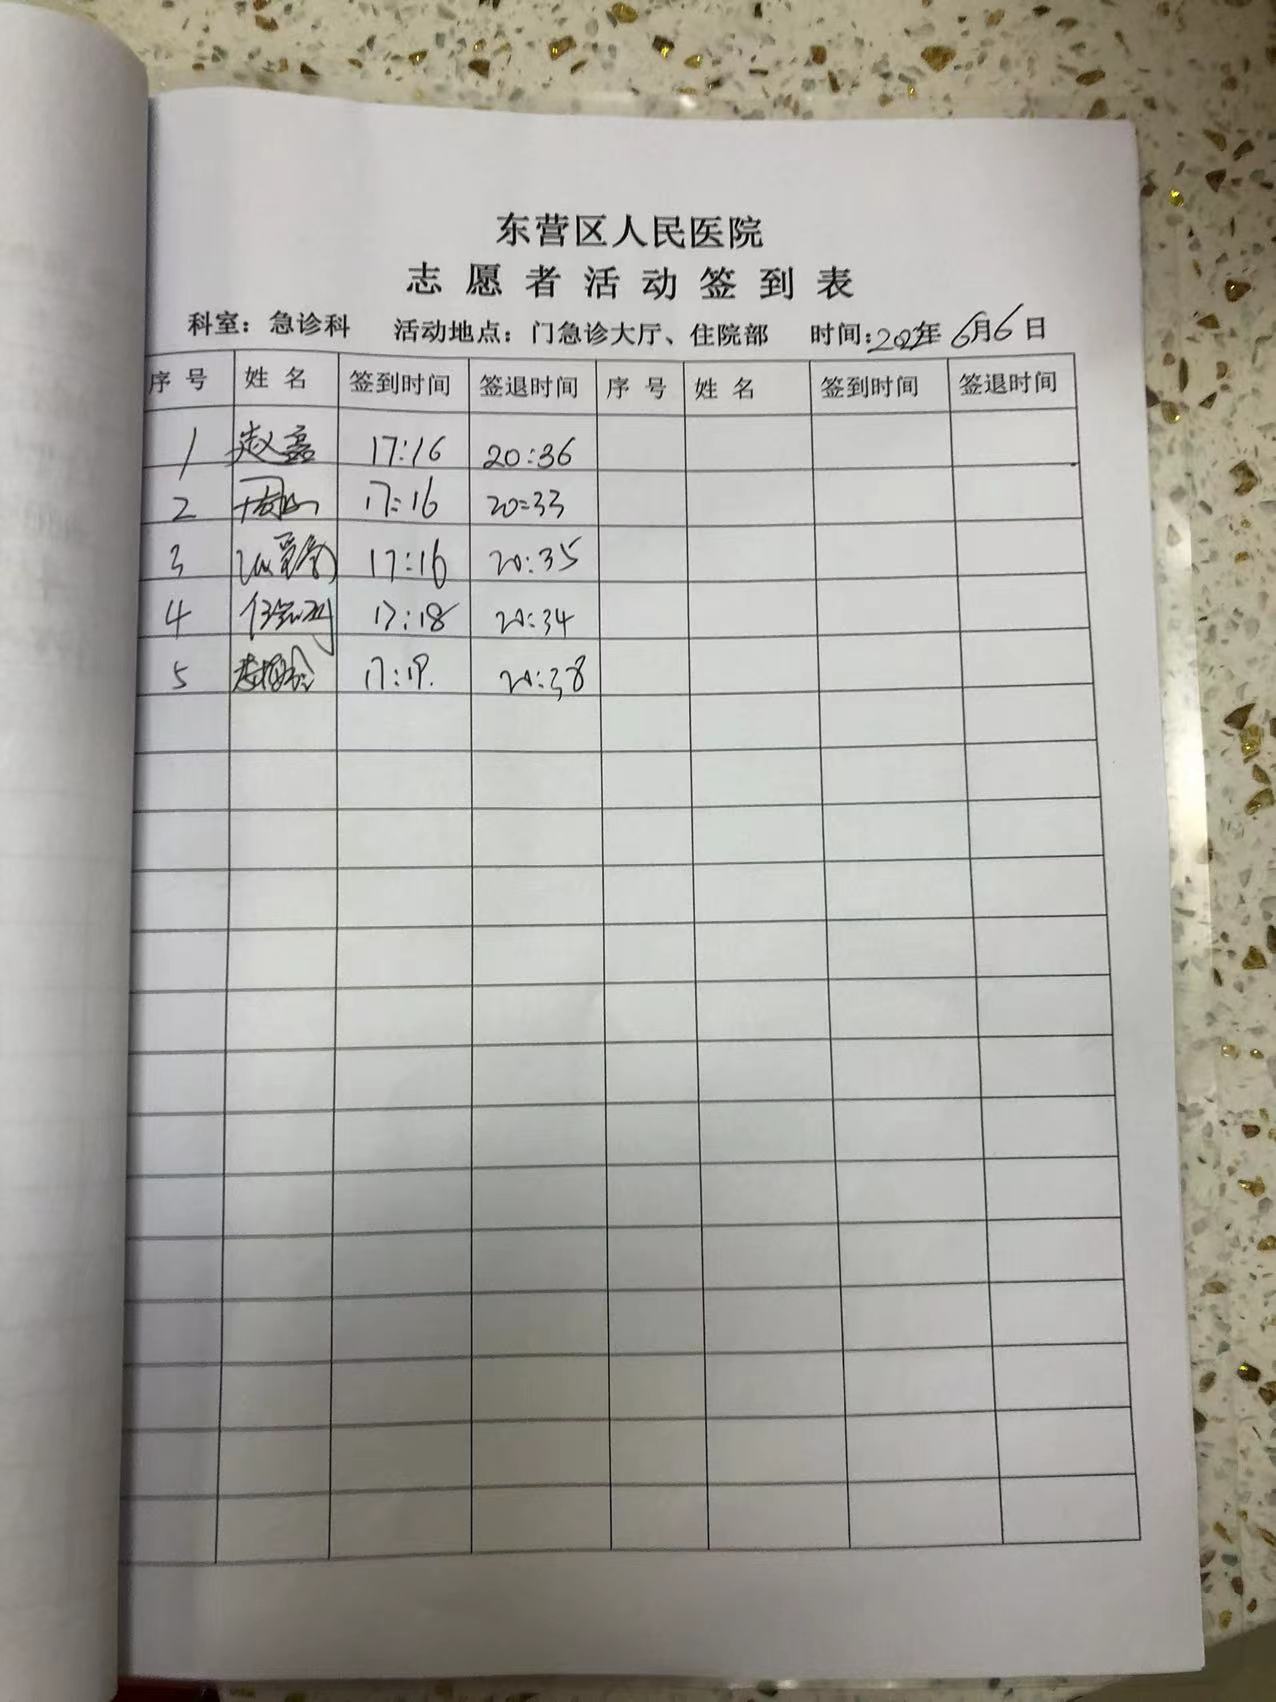 东营区人民医院
志愿者活动签到表
科室：急诊科 活动地点：门急诊大厅、住院部 时间：年 6月6日
序号 姓名 签到时间 签退时间 序号 姓名 签到时间 签退时间
1 赵磊 17:16 20:36
2 17:16 20:33
3 17:16 20:35
4 17:18 20:34
5 17:19. 20:38